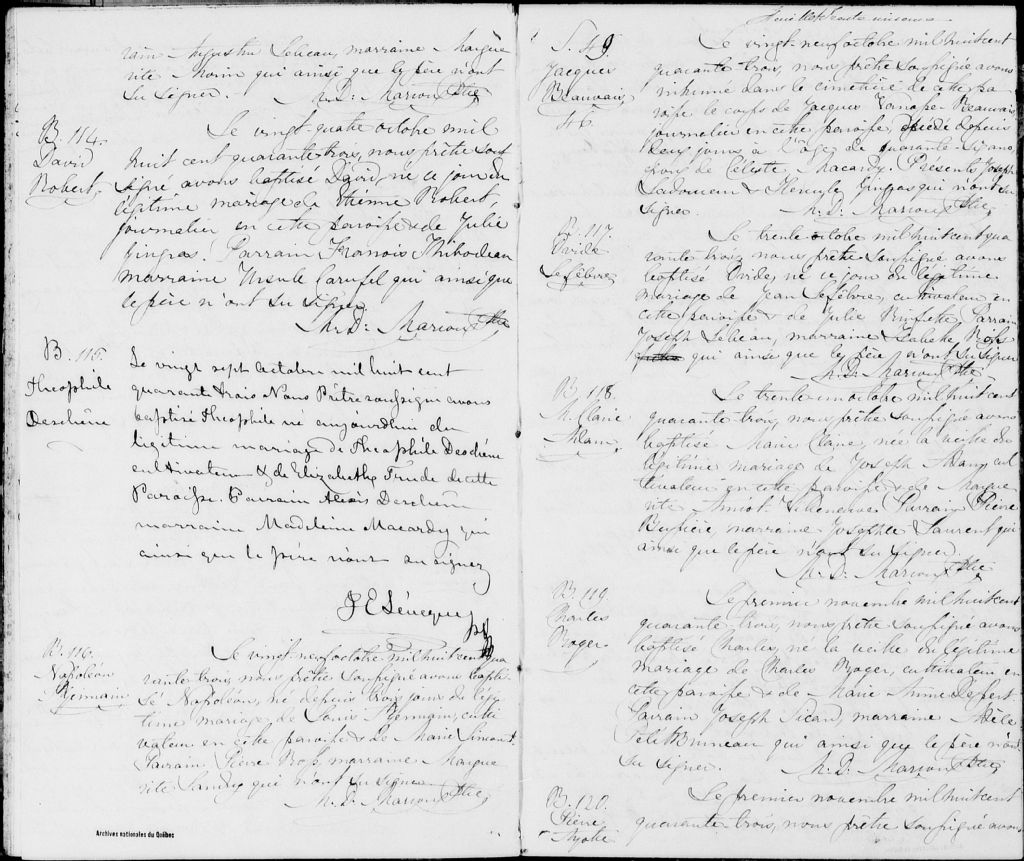 rain Augustin Lebeau, marraine Margue
rite Morin qui ainsi que le père n'ont
su signer. M. D. Marcoux Ptre
B. 114.
David
Robert.
Le vingt-quatre octobre mil
huit cent quarante trois, nous prêtre sous
signé avons baptisé David, né ce jour du
légitime mariage de Etienne Robert,
journalier en cette paroisse & de Julie
Gingras. Parrain François Thibodeau
marraine Ursule Carufel qui ainsi que
le père n'ont su signer.
M. D. Marcoux Ptre
B. 115.
Théophile
Deschêne
Le vingt sept Octobre mil huit cent
quarante trois Nous Prêtre soussigné avons
baptisé Théophile né aujourdhui du
légitime mariage de Théophile Deschêne
cultivateur & de Elizabeth Trude de cette
Paroisse. Parrain Alexis Deschêne
marraine Madeleine Macardy qui
ainsi que le père n'ont su signer
B. 116.
Napoléon
Germain
Le vingt-neuf octobre mil huit cent qua
rante trois, nous prêtre soussigné avons bapti
sé Napoléon, né depuis trois jours du légi
time mariage de Louis Germain, culti
vateur en cette paroisse & de Marie
Parrain Pierre marraine Margue
rite qui n'ont su signer.
M. D. Marcoux Ptre
Archives nationales du Québec
S. 49.
Jacques
Beauvais
46.
Le vingt-neuf octobre mil huit cent
quarante trois, nous prêtre soussigné avons
inhumé dans le cimetière de cette pa
roisse le corps de Jacques Beauvais
journalier en cette paroisse, décédé depuis
deux jours à l'âge de quarante-six ans
époux de Céleste Macardy. Présents Joseph
Ladouceur & Gingras qui n'ont su
signer. M. D. Marcoux Ptre
B. 117.
Ovide
Lefebvre
Le trente octobre mil huit cent qua
rante trois, nous prêtre soussigné avons
baptisé Ovide, né ce jour du légitime
mariage de Jean Lefebvre, cultivateur en
cette paroisse & de Julie Parrain
Joseph Lebeau, marraine
qui ainsi que le père n'ont su signer
M. D. Marcoux Ptre
B. 118.
M. Claire
Adam
Le trente-un octobre mil huit cent
quarante-trois, nous prêtre soussigné avons
baptisé Marie Claire, née la veille du
légitime mariage de Joseph Adam, cul
tivateur en cette paroisse & de Margue
rite Amiot Villeneuve. Parrain Pierre
marraine Josephte Laurent qui
ainsi que le père n'ont su signer.
M. D. Marcoux Ptre
B. 119.
Charles
Roger
Le premier novembre mil huit cent
quarante-trois, nous prêtre soussigné avons
baptisé Charles, né la veille du légitime
mariage de Charles Roger, cultivateur en
cette paroisse & de Marie Anne
Parrain Joseph Picard, marraine Adèle
Petit Bruneau qui ainsi que le père n'ont
su signer. M. D. Marcoux Ptre
B. 120.
Pierre
Le premier novembre mil huit cent
quarante-trois, nous prêtre soussigné avons